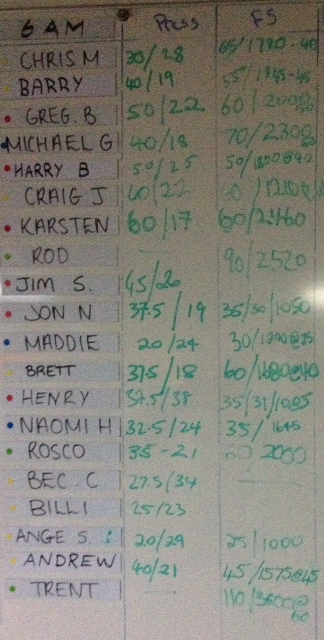 6 AM Press FS
CHRIS M 30/28 65/1780-40
BARRY 40/19 55/
GREG. B 50/22 60/
MICHAEL G 40/18 70/2380
HARRY B 50/25 50/
CRAIG J
KARSTEN 60/17 60/2460
ROD 90/2520
JIM S. 45/20
JON N 37.5/19 35/30/1050
MADDIE 20/24 30/
BRETT 37.5/18 60/
HENRY 37.5/38 35/31/1085
NAOMI H 32.5/24 35/1645
ROSCO 35-21 2000
BEC. C 27.5/34
BILLI 25/23
ANGE S. 20/29 25/1000
ANDREW 40/21 45/1575@45
TRENT 110/3600@60